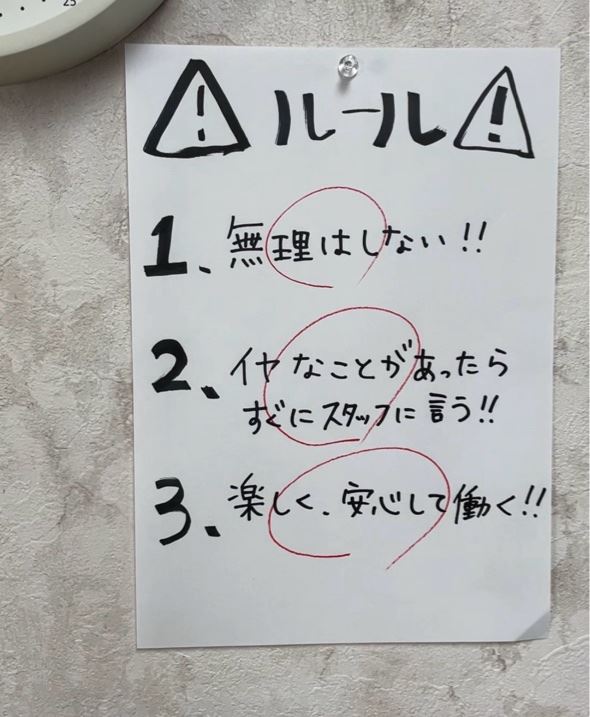 25
ルール
1、無理はしない!!
2、イヤなことがあったら
すぐにスタッフに言う!!
3、楽しく、安心して働く!!